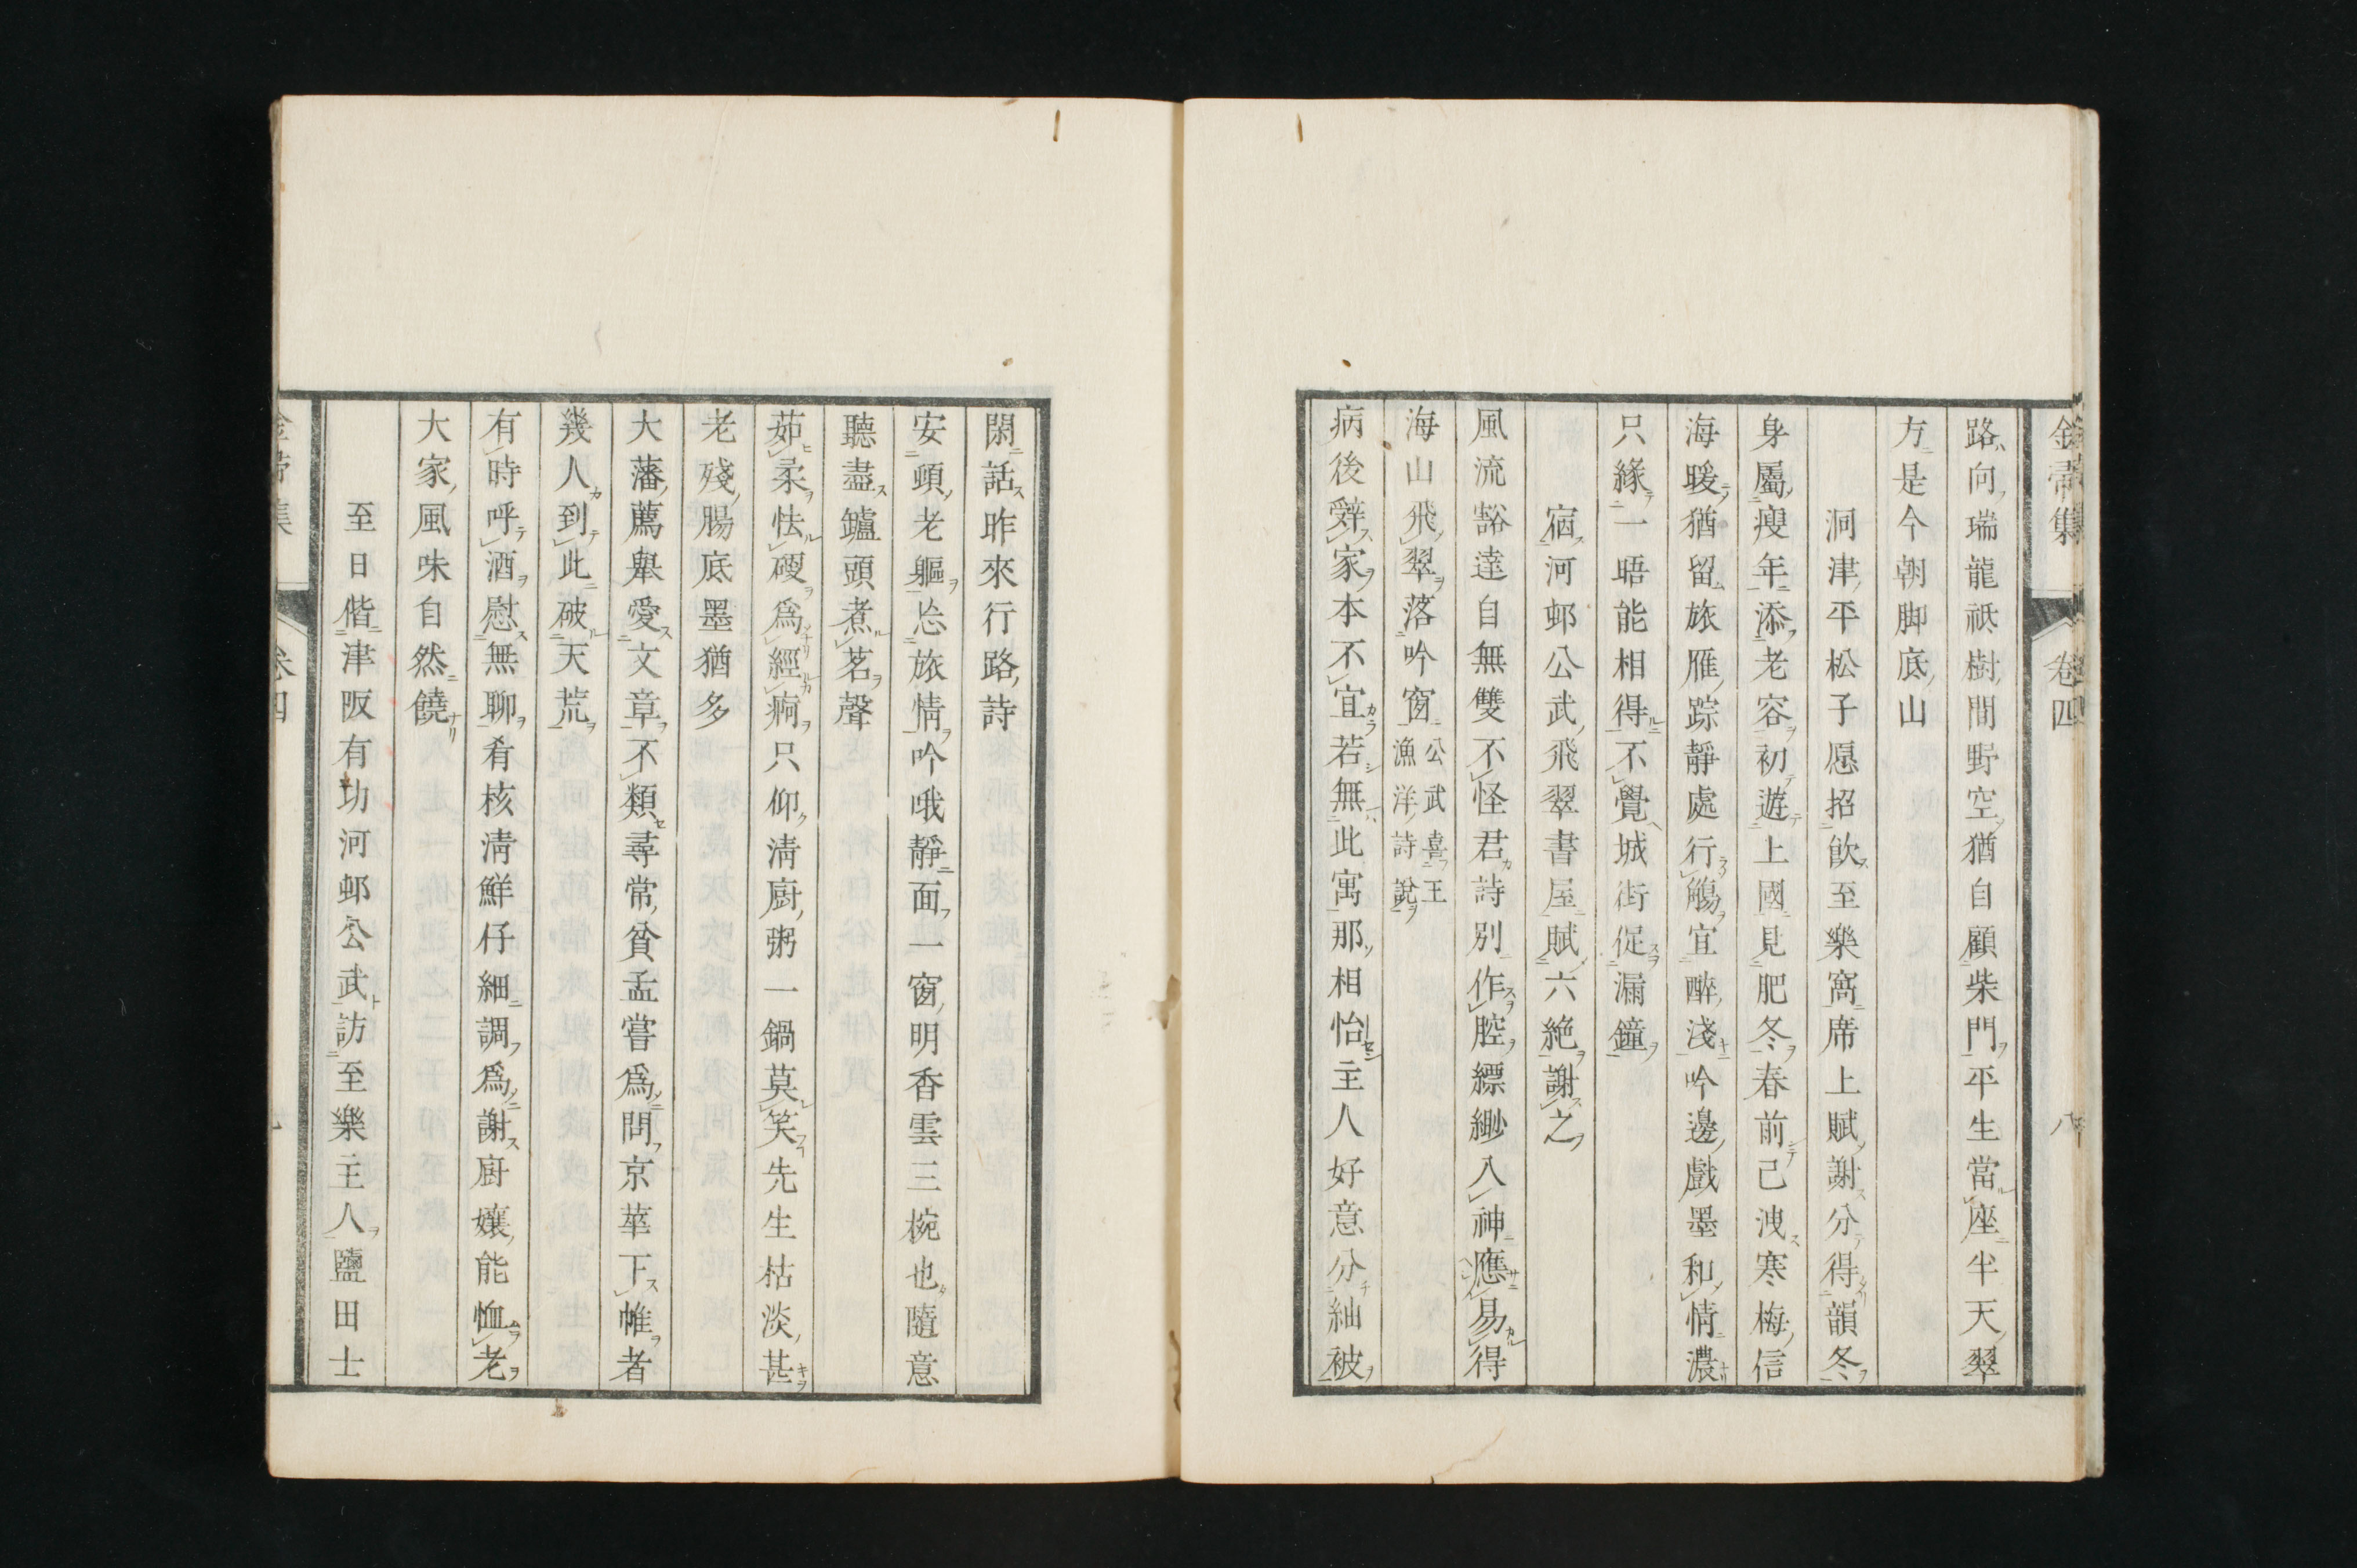 金帚集 卷四 八
路向瑞龍祗樹間野空猶自顧柴門平生當座半天翠
方是今朝脚底山
洞津平松子愿招飲至樂窩席上賦謝分得韻冬
身屬瘦年添老容初遊上國見肥冬春前已洩寒梅信
海暖猶留旅雁踪靜處行觴宜醉淺吟邊戲墨和情濃
只緣一晤能相得不覺城街促漏鐘
宿河邨公武飛翠書屋賦六絶謝之
風流豁達自無雙不怪君詩別作腔縹緲入神應易得
海山飛翠落吟窗
公武喜王
漁洋詩說
病後辭家本不宜若無此寓那相怡主人好意分紬被
閑話昨來行路詩
安頓老軀忘旅情吟哦靜面一窗明香雲三椀也隨意
聽盡鑪頭煮茗聲
茹柔怯硬爲經痾只仰淸廚粥一鍋莫笑先生枯淡甚
老殘腸底墨猶多
大藩薦舉愛文章不類尋常貧孟嘗爲問京華下帷者
幾人到此破天荒
有時呼酒慰無聊肴核淸鮮仔細調爲謝廚孃能恤老
大家風味自然饒
至日偕津阪有功河邨公武訪至樂主人鹽田士